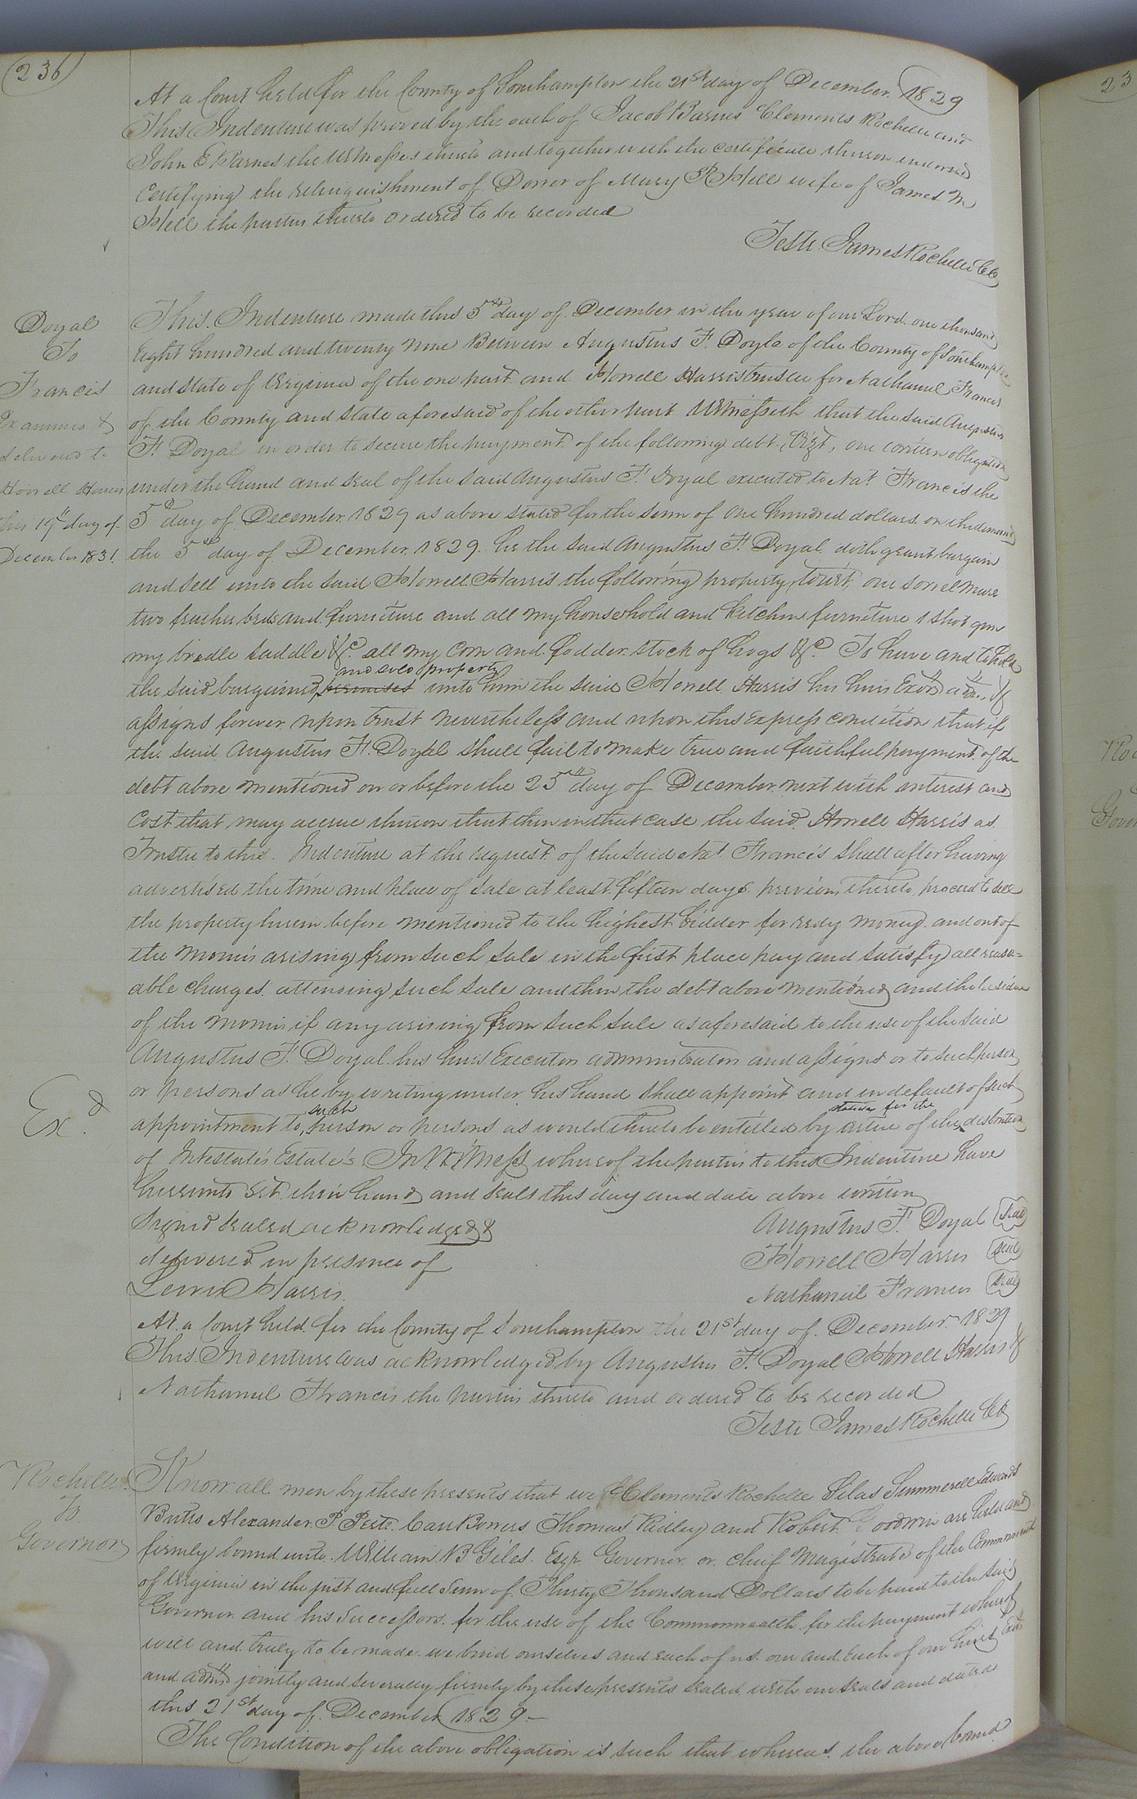 236
At a Court held for the County of Southampton the 21st day of December 1829
This Indenture was proved by the oath of Jacob Barnes Clements Rochelle and
John E Barnes the Witnesses thereto and together with the certificate thereon endorsed
Certifying the relinquishment of Dower of Mary R Hill wife of James M
Hill the parties thereto ordered to be recorded
Teste James Rochelle CC
Doyal
To
Francis
Examined &
delivered to
Howell Harris
this 19th day of
December 1831.
This Indenture made this 5th day of December in the year of our Lord one thousand
Eight hundred and twenty nine Between Augustus F. Doyle of the County of Southampton
and State of Virginia of the one part and Howell Harris trustee for Nathaniel Francis
of the County and State aforesaid of the other part Witnesseth that the said Augustus
F. Doyal in order to secure the payment of the following debt, Vizt, one certain obligation
under the hand and seal of the said Augustus F. Doyal executed to Nat Francis the
5th day of December 1829 as above stated for the sum of One hundred dollars on the demand
the 5th day of December 1829. he the said Augustus F. Doyal doth grant bargain
and sell unto the said Howell Harris the following property, towit, one sorrel mare
two feather beds and furniture and all my household and kitchen furniture 1 shot gun
my bridle saddle &c. all my corn and fodder stock of hogs &c. To have and to hold
and sold property
the said bargained premises unto him the said Howell Harris his heirs Exors adm. &
assigns forever upon trust nevertheless and upon this Express condition that if
the said Augustus F. Doyal shall fail to make true and faithful payment of the
debt above mentioned on or before the 25th day of December next with interest and
Cost that may accrue thereon that then in that case the said Howell Harris as
Trustee to this Indenture at the request of the said Nat Francis shall after having
advertised the time and place of sale at least fifteen days previous thereto proceed to sell
the property herein before mentioned to the highest bidder for redy money and out of
the monies arising from such sale in the first place pay and satisfy all reason=
able charges attending such sale and then the debt above mentioned and the residue
of the monies if any arising from such sale as aforesaid to the use of the said
Augustus F. Doyal his heirs Executors administrators and assigns or to such person
or persons as he by writing under his hand shall appoint and in default of such
Exd.
such
statutes for the
appointment to person or persons as would thereto be entitled by virtue of the distribution
of Intestate's Estate's In Witness whereof the parties to this Indenture have
hereunto set their hand and seals this day and date above written
Signed sealed acknowledged &
delivered in presence of
Lewis Harris.
Augustus F. Doyal Seal
Howell Harris Seal
Nathaniel Francis Seal
At a Court held for the County of Southampton the 21st day of December 1829
This Indenture was acknowledged by Augustus F. Doyal Howell Harris &
Nathaniel Francis the parties thereto and ordered to be recorded
Teste James Rochelle CC
Rochelle
To
Governor
Know all men by these presents that we Clements Rochelle Silas Summerell Edwards
Butts Alexander P Peete Carr Bowers Thomas Ridley and Robert Goodwin are held and
firmly bound unto William B Giles Esqr. Governor or chief Magistrate of the Commonwealth
of Virginia in the just and full Sum of Thirty Thousand Dollars to be paid to the said
Governor and his Successors for the use of the Commonwealth for the payment whereof
well and truly to be made we bind ourselves and each of us our and Each of our heirs Exors
and adms jointly and severally firmly by these presents sealed with our seals and dated
this 21st day of December 1829-
The Condition of the above obligation is such that whereas the above bound